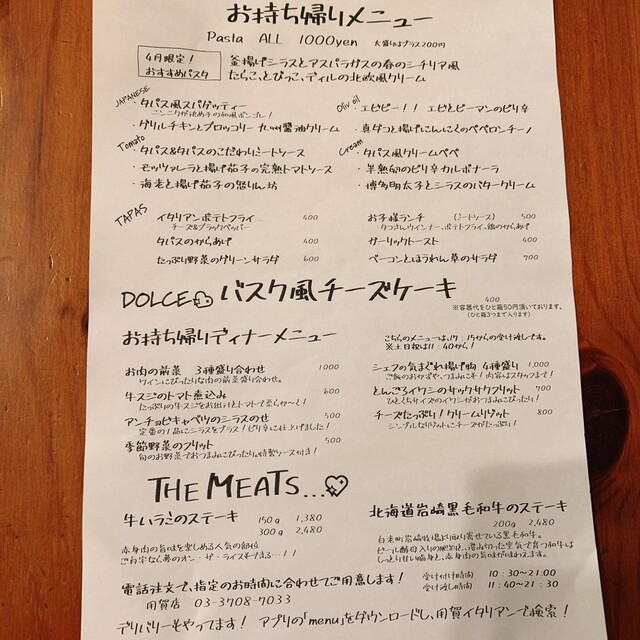 お持ち帰りメニュー
Pasta ALL 1000yen 大盛りはプラス200円
4月限定！
おすすめパスタ
釜揚げシラスとアスパラガスの春のシチリア風
たらこ、とびっこ、ディルの北欧風クリーム
JAPANESE
・タパス風スパゲッティー
ニンニクが決め手の和風ボンゴレ！
・グリルチキンとブロッコリー 九州醤油クリーム
Oliv oil
・エビピー！！ エビとピーマンのピリ辛
・真ダコと揚げにんにくのペペロンチーノ
Tomato
・タパス&タパスのこだわりミートソース
・モッツァレラと揚げ茄子の完熟トマトソース
・海老と揚げ茄子の怒りん坊
Cream
・タパス風クリームペペ
・半熟卵のピリ辛カルボナーラ
・博多明太子とシラスのバタークリーム
TAPAS
イタリアンポテトフライ 400
チーズ&ブラックペッパー
タパスのからあげ 400
たっぷり野菜のグリーンサラダ 600
お子様ランチ (ミートソース) 500
タコさんウインナー、ポテトフライ、鶏のからあげ
ガーリックトースト 400
ベーコンとほうれん草のサラダ 700
DOLCE バスク風チーズケーキ 400
※容器代をひと箱50円頂いております。
(ひと箱3つまで入ります)
お持ち帰りディナーメニュー
こちらのメニューは、17：15からの受け渡しです。
※土日祝は11：40から！
お肉の前菜 3種盛り合わせ 1000
ワインにぴったりな肉の前菜盛り合わせ。
牛スジのトマト煮込み 600
たっぷりの牛スジをお出汁とトマトで柔らか〜く！
アンチョビキャベツのシラスのせ 500
定番の1品にシラスをプラス！ピリ辛に仕上げました！
季節野菜のフリット 500
旬のお野菜でおつまみにぴったり♪特製ソース付き！
シェフの気まぐれ揚げ物 4種盛り 1,000
ご飯のおかずや、つまみにこそ！内容はスタッフまで！
とんごろイワシのサックサクフリット 700
ひとくちサイズのイワシがおつまみにぴったり！
チーズたっぷり！クリームリゾット 800
シンプルなリゾットにチーズがたっぷり！
THE MEATS...
牛ハラミのステーキ 150g 1,380
300g 2,480
赤身肉の旨味を楽しめる人気の部位
ご自宅なら夢のオン・ザ・ライスもできる...！！
北海道岩崎黒毛和牛のステーキ
200g 2,480
白老町岩崎牧場より取り寄せている黒毛和牛。
ビール酵母入りの肥料と、澄み切った空気で育つ和牛は
しっとりきめ細かさと、赤身肉の旨味が味わえます。
電話注文で、指定のお時間に合わせてご用意します！
用賀店 03-3708-7033
受け付け時間 10：30〜21:00
受け渡し時間 11：40〜21：30
デリバリーもやってます！ アプリの「menu」をダウンロードし、用賀イタリアンで検索！